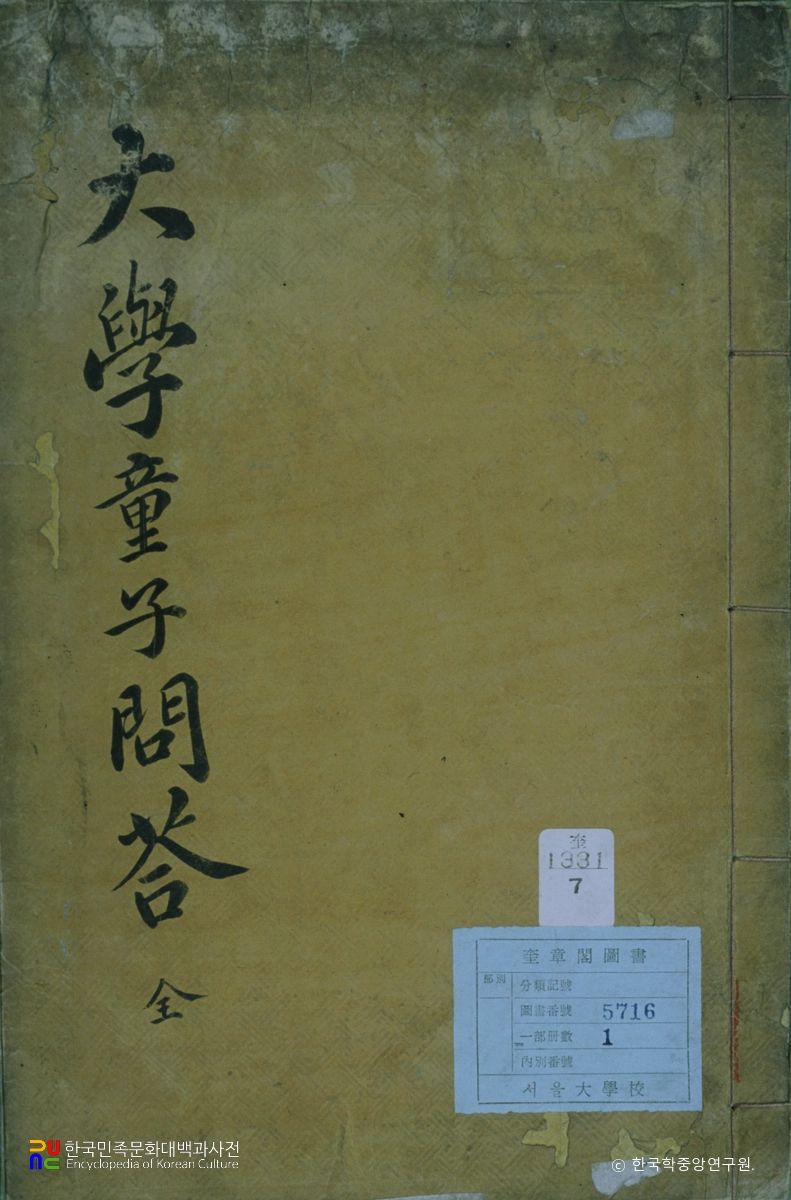 大學童子問荅 全
奎
1331
7
奎章閣圖書
部別
分類記號
圖書番號 5716
一部册數 1
內別番號
서울大學校
한국민족문화대백과사전
Encyclopedia of Korean Culture
ⓒ 한국학중앙연구원.